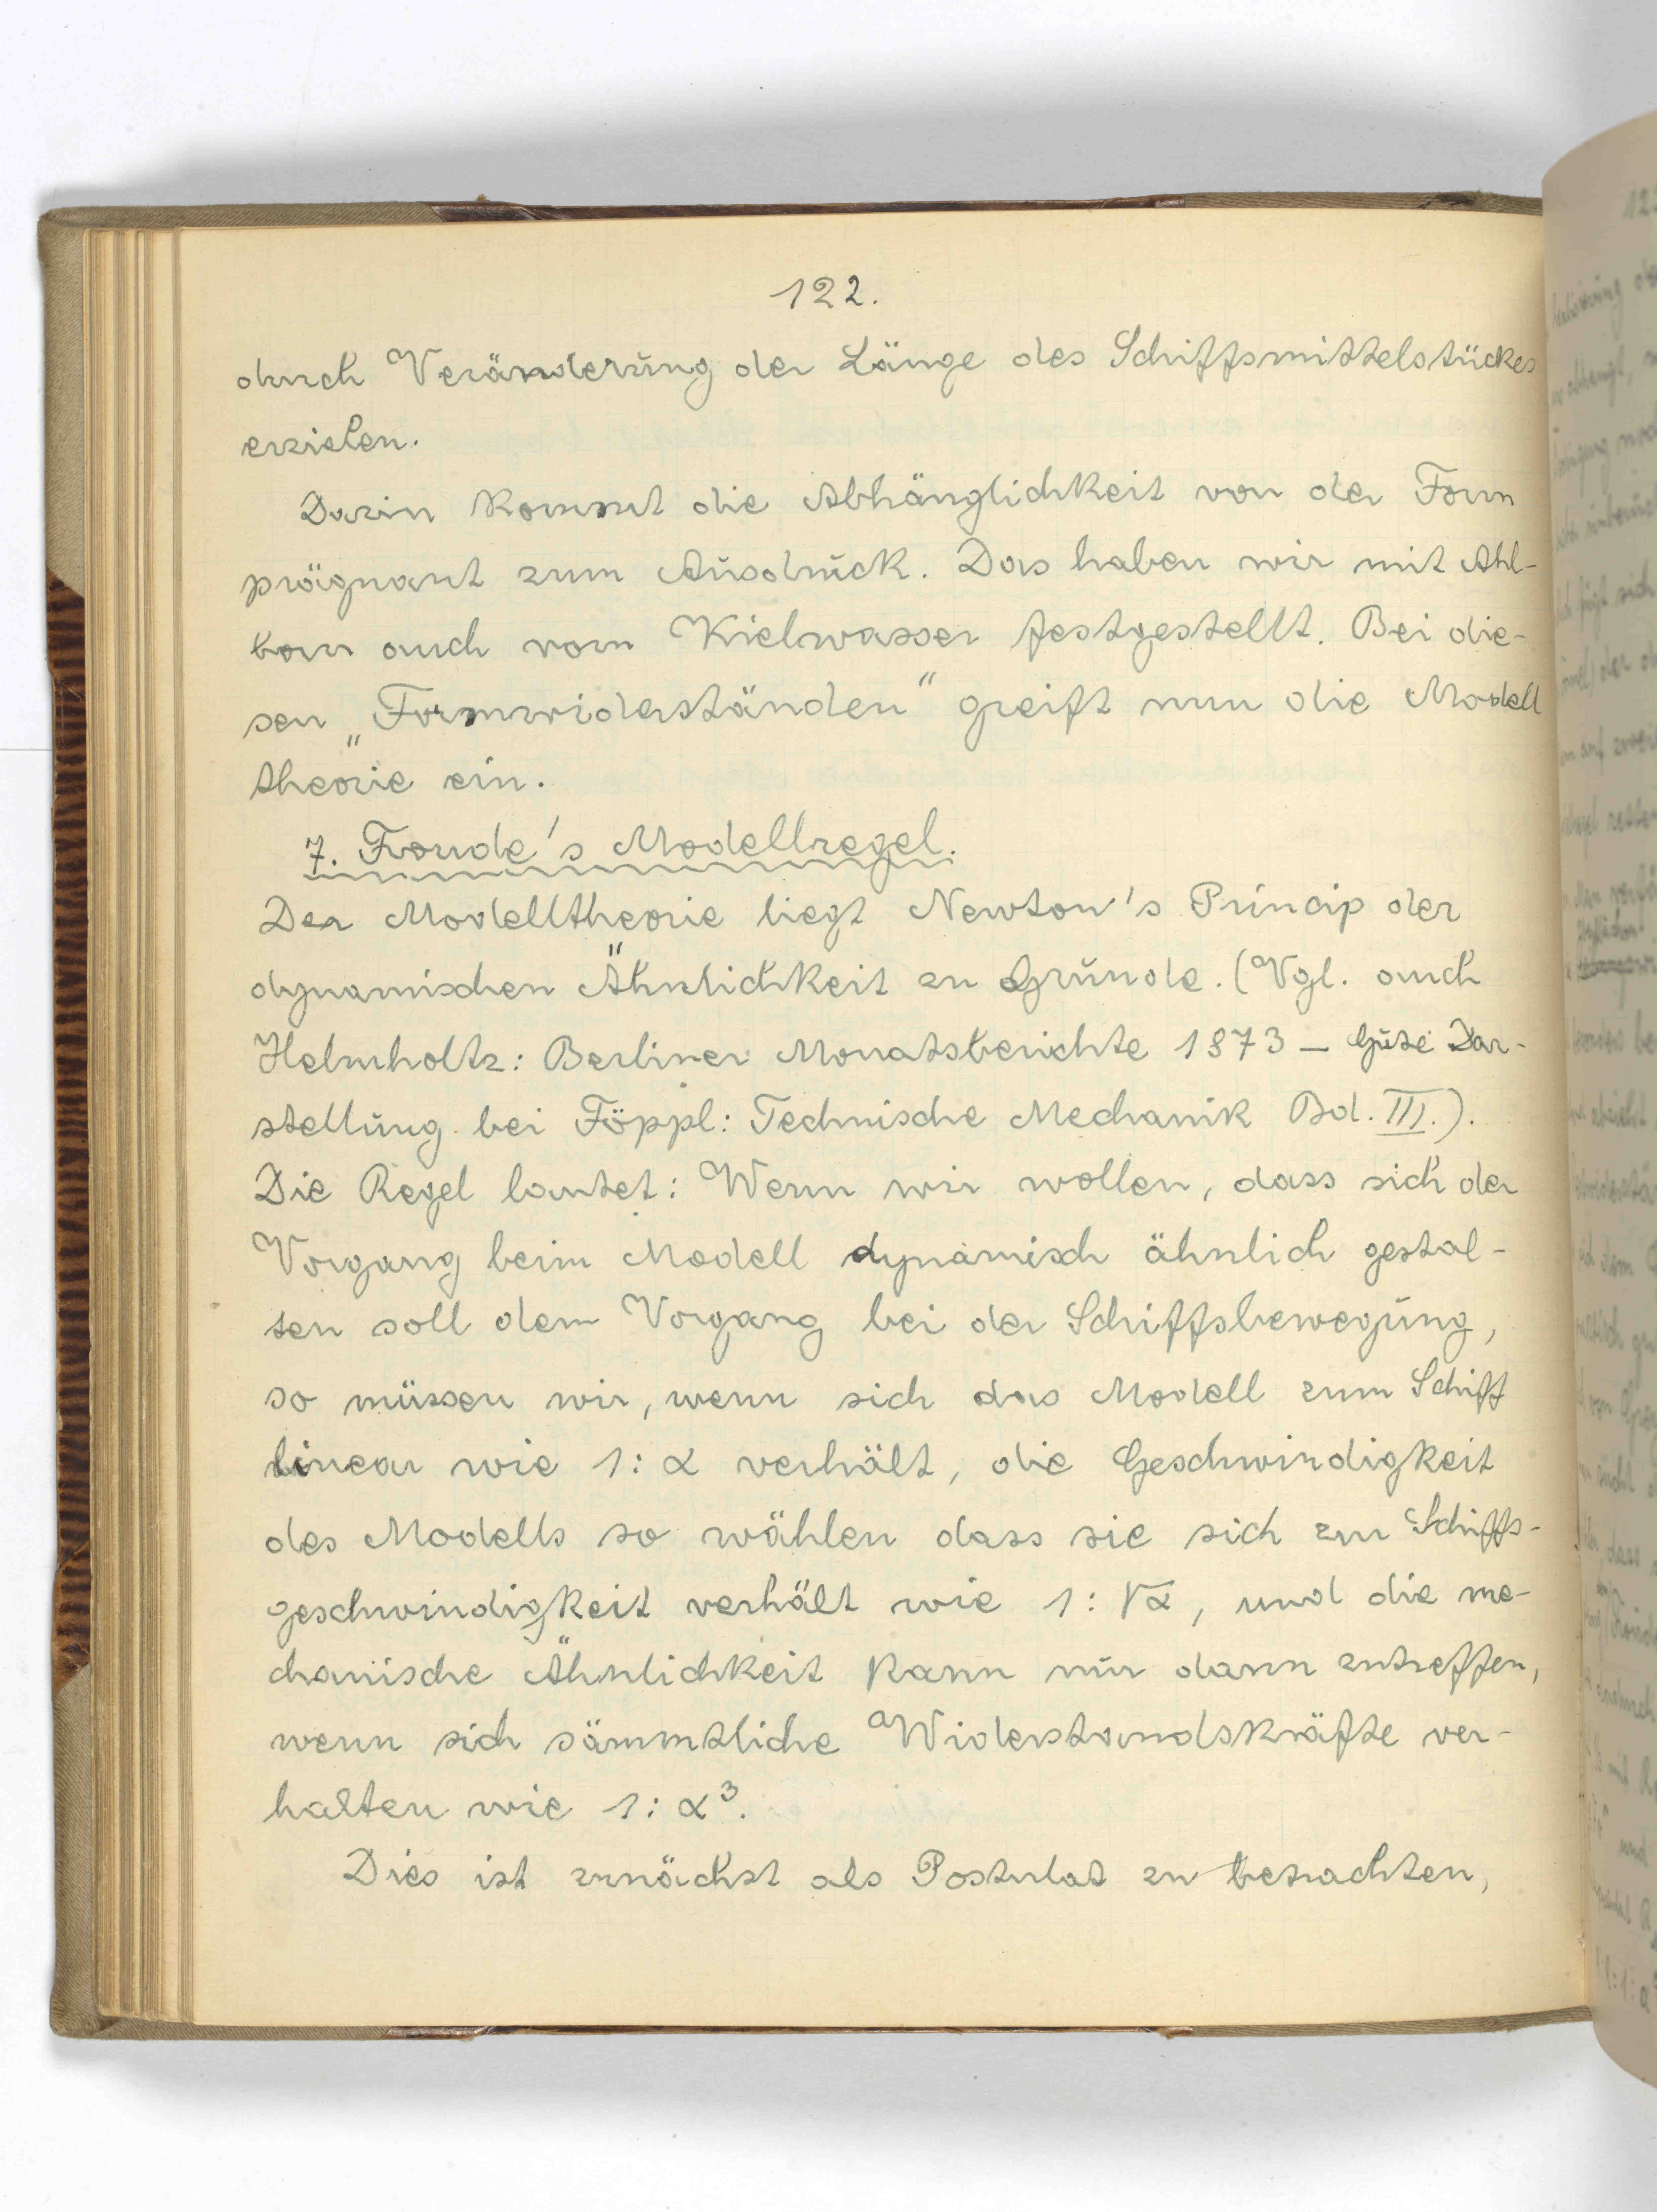 122.
durch Veränderung der Länge des Schiffsmittelstückes
erzielen.
Darin kommt die Abhänglichkeit von der Form
prägnant zum Ausdruck. Das haben wir mit Ahl-
born auch vom Kielwasser festgestellt. Bei die-
sen „Formwiderständen“ greift nun die Modell
theorie ein.
7. Froude's Modellregel.
Der Modelltheorie liegt Newton's Princip der
dynamischen Ähnlichkeit zu Grunde. (Vgl. auch
Helmholtz: Berliner Monatsberichte 1873 – Gute Dar-
stellung bei Föppl: Technische Mechanik Bd. III.).
Die Regel lautet: Wenn wir wollen, dass sich der
Vorgang beim Modell dynamisch ähnlich gestal-
ten soll dem Vorgang bei der Schiffsbewegung,
so müssen wir, wenn sich das Modell zum Schiff
linear wie 1:α verhält, die Geschwindigkeit
des Modells so wählen dass sie sich zur Schiffs-
geschwindigkeit verhält wie 1:√α, und die me-
chanische Ähnlichkeit kann nur dann zutreffen,
wenn sich sämmtliche Widerstandskräfte ver-
halten wie 1:α³.
Dies ist zunächst als Postulat zu betrachten,